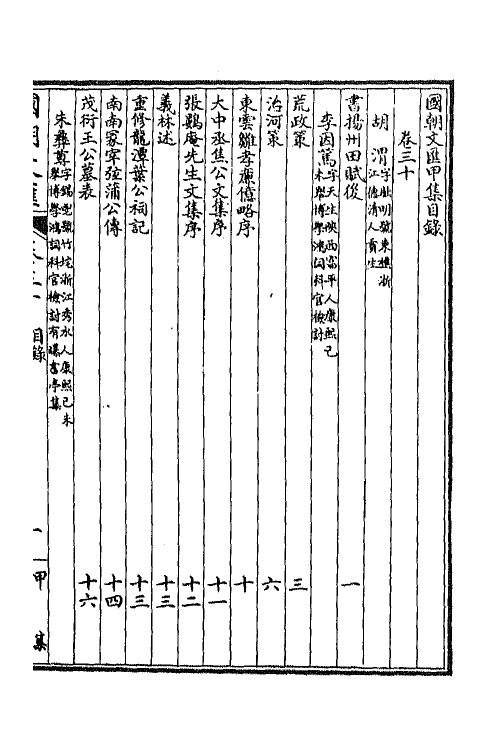 國朝文匯甲集目錄
卷三十
胡渭 字朏明號東樵浙江德清人貢生
書揚州田賦後 一
李因篤 字天生陝西富平人康熙己未舉博學鴻詞科官檢討
荒政策 三
治河策 六
東雲雛孝廉億略序 十
大中丞焦公文集序 十一
張鷃庵先生文集序 十二
義林述 十三
重修龍潭葉公祠記 十三
南南冢宰弦蒲公傳 十四
茂衍王公墓表 十六
朱彝尊 字錫鬯號竹垞浙江秀水人康熙己未舉博學鴻詞科官檢討有曝書亭集
國朝文匯 目錄 一 甲集